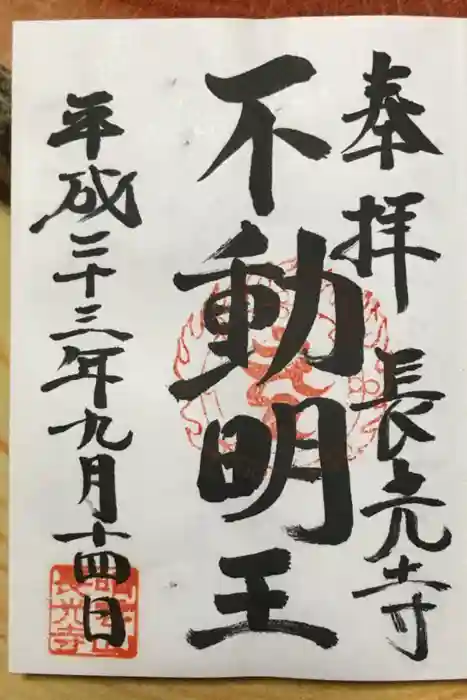 奉拝 長光寺
不動明王
平成二十三年九月十四日
長光寺